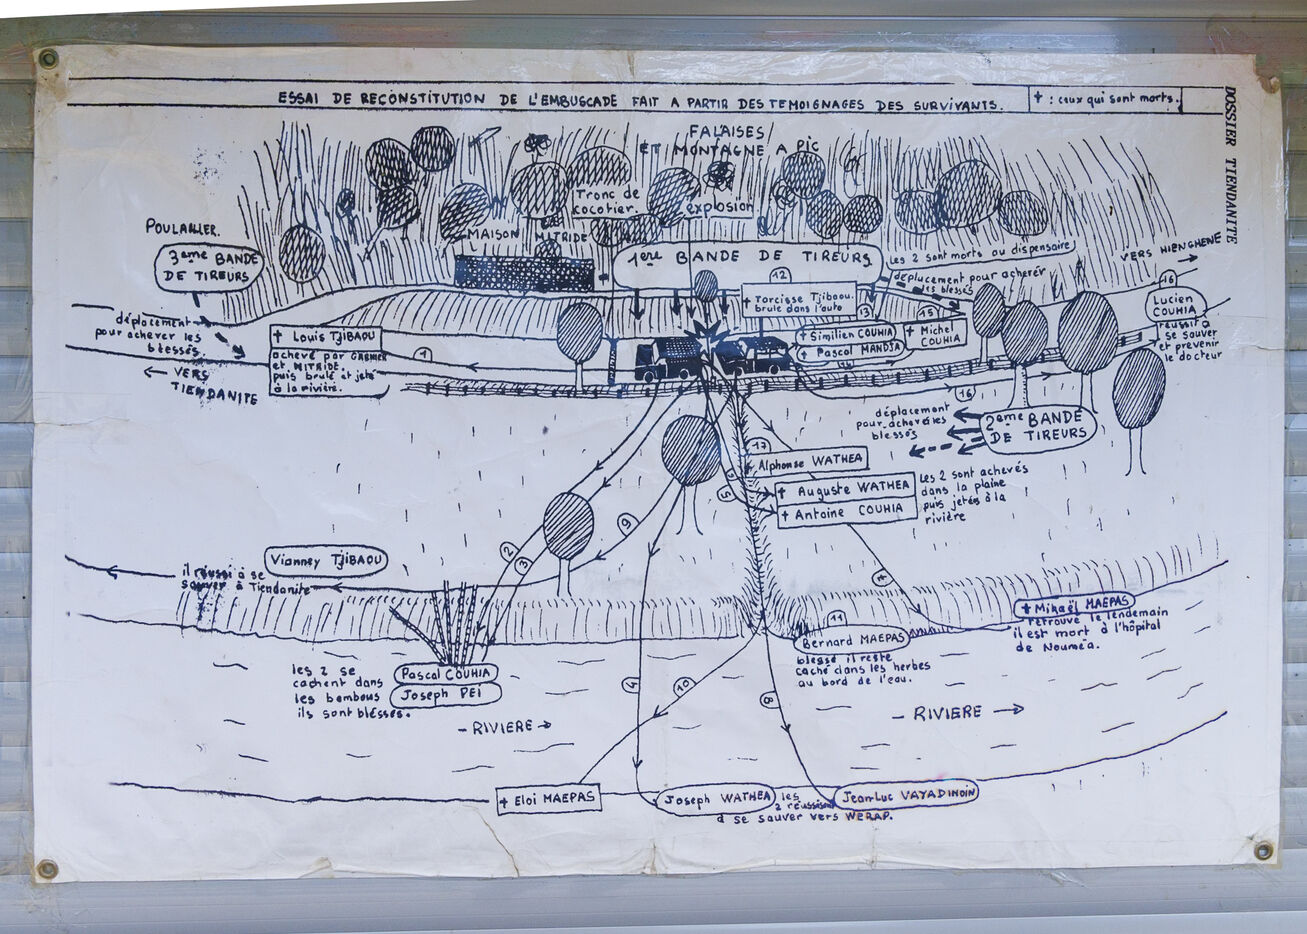 ESSAI DE RECONSTITUTION DE L'EMBUSCADE FAIT A PARTIR DES TEMOIGNAGES DES SURVIVANTS.
✝ : ceux qui sont morts.
DOSSIER TIENDANITE
FALAISES
ET MONTAGNE A PIC
Tronc de
cocotier.
explosion
POULAILLER.
MAISON MITRIDE
3ème BANDE
DE TIREURS
1ere BANDE DE TIREURS
les 2 sont morts au dispensaire
VERS HIENGHENE
déplacement pour achever
les blessés
12
✝ Tarcisse Tjibaou.
brulé dans l'auto
13
15
16
Lucien
COUHIA
réussit à
se sauver
et prévenir
le docteur
déplacement
pour achever les
blessés
← VERS
TIENDANITE
✝ Louis TJIBAOU
achevé par GARNIER
et MITRIDE.
puis brulé et jeté
à la rivière.
1
✝ Similien COUHIA
✝ Pascal MANDJA
✝ Michel
COUHIA
14
16
déplacement
pour achever les
blessés
2ème BANDE
DE TIREURS
17
Alphonse WATHEA
✝ Auguste WATHEA
✝ Antoine COUHIA
les 2 sont achevés
dans la plaine
puis jetés à la
rivière
5
9
2
3
Vianney TJIBAOU
il réussi à se
sauver à Tiendanite
✝ Mikaël MAEPAS
retrouvé le lendemain
il est mort à l'hôpital
de Nouméa.
11
Bernard MAEPAS
blessé il reste
caché dans les herbes
au bord de l'eau.
Pascal COUHIA
Joseph PEI
les 2 se
cachent dans
les bambous
ils sont blessés.
10
8
- RIVIERE →
- RIVIERE →
✝ Eloi MAEPAS
Joseph WATHEA
les
2 réussissent
à se sauver vers WERAP.
Jean-Luc VAYADIMOIN